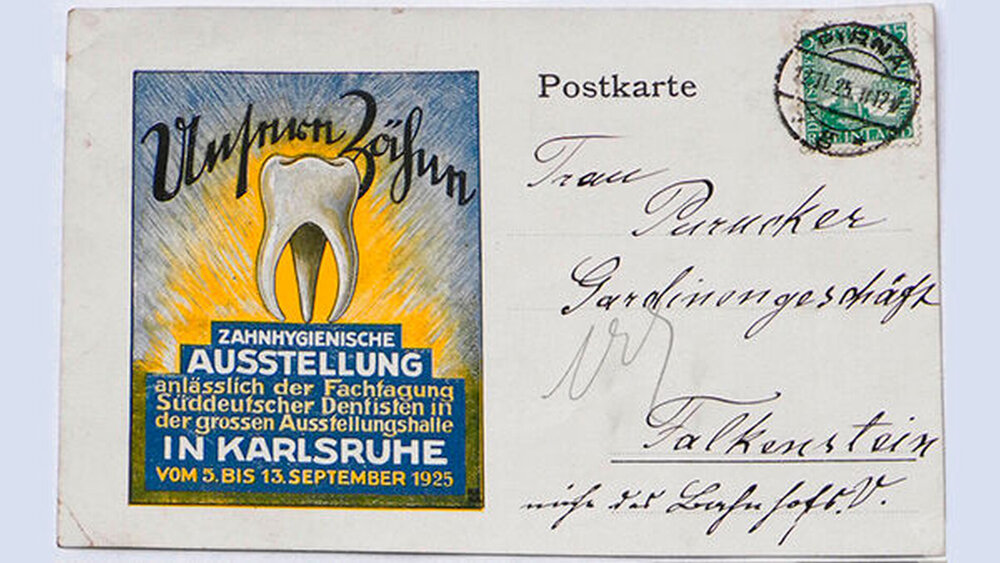 Unsere Zähne
ZAHNHYGIENISCHE
AUSSTELLUNG
anlässlich der Fachtagung
Süddeutscher Dentisten in
der grossen Ausstellungshalle
IN KARLSRUHE
VOM 5. BIS 13. SEPTEMBER 1925
Postkarte
PIRNA
Frau
Purucker
Gardinengeschäft
Falkenstein
des Bahnhofs. V.